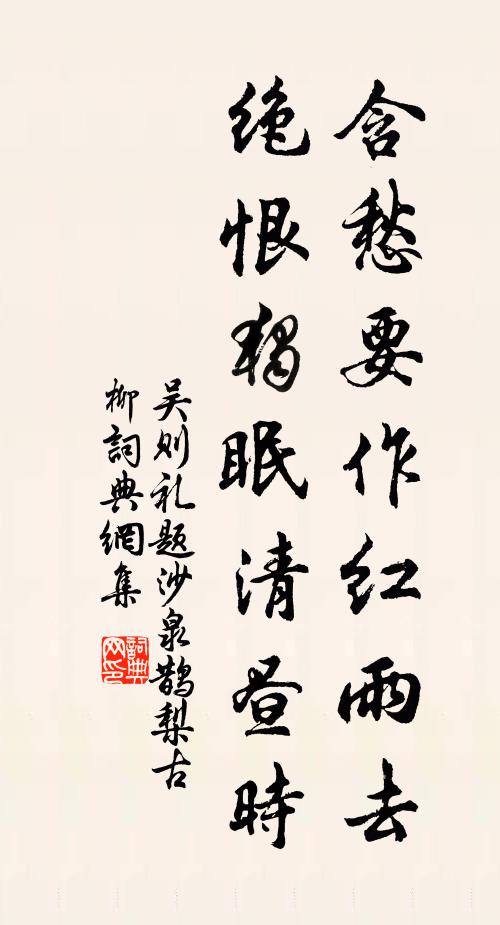 含愁要作红雨去
绝恨独眠清昼时
吴则礼题沙泉鹊梨古
柳詞典網集
詞典网印